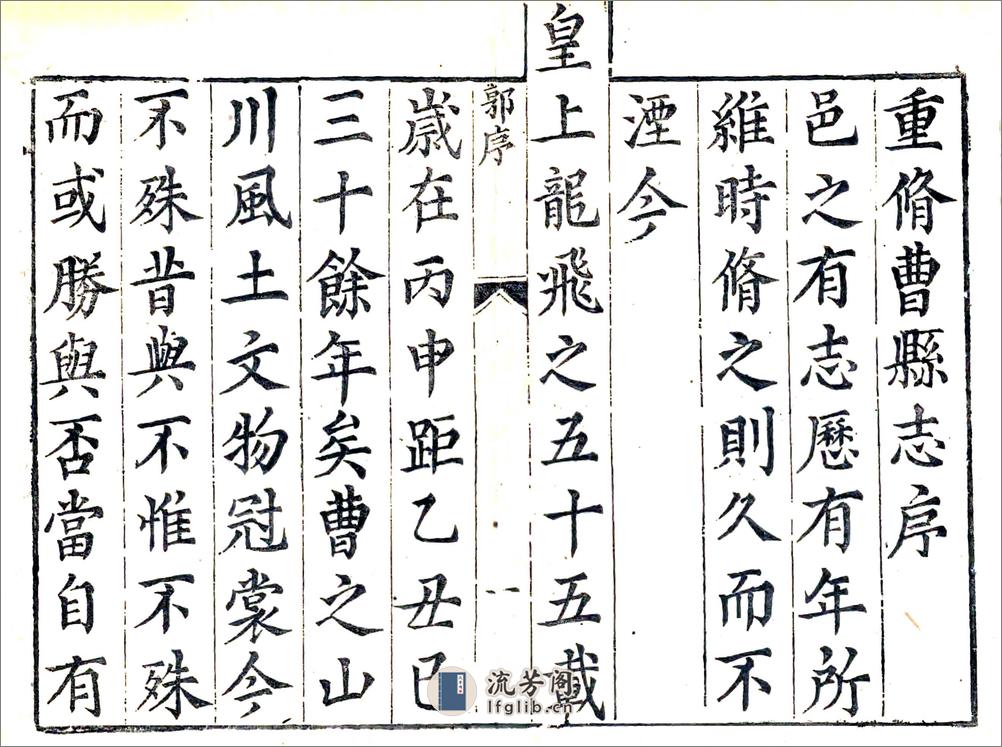 重脩曹縣志序
邑之有志歷有年所
維時脩之則久而不
湮今
皇上龍飛之五十五載
郭序
一
歲在丙申距乙丑已
三十餘年矣曹之山
川風土文物冠裳今
不殊昔與不惟不殊
而或勝與否當自有
流芳阁
lfglib.cn